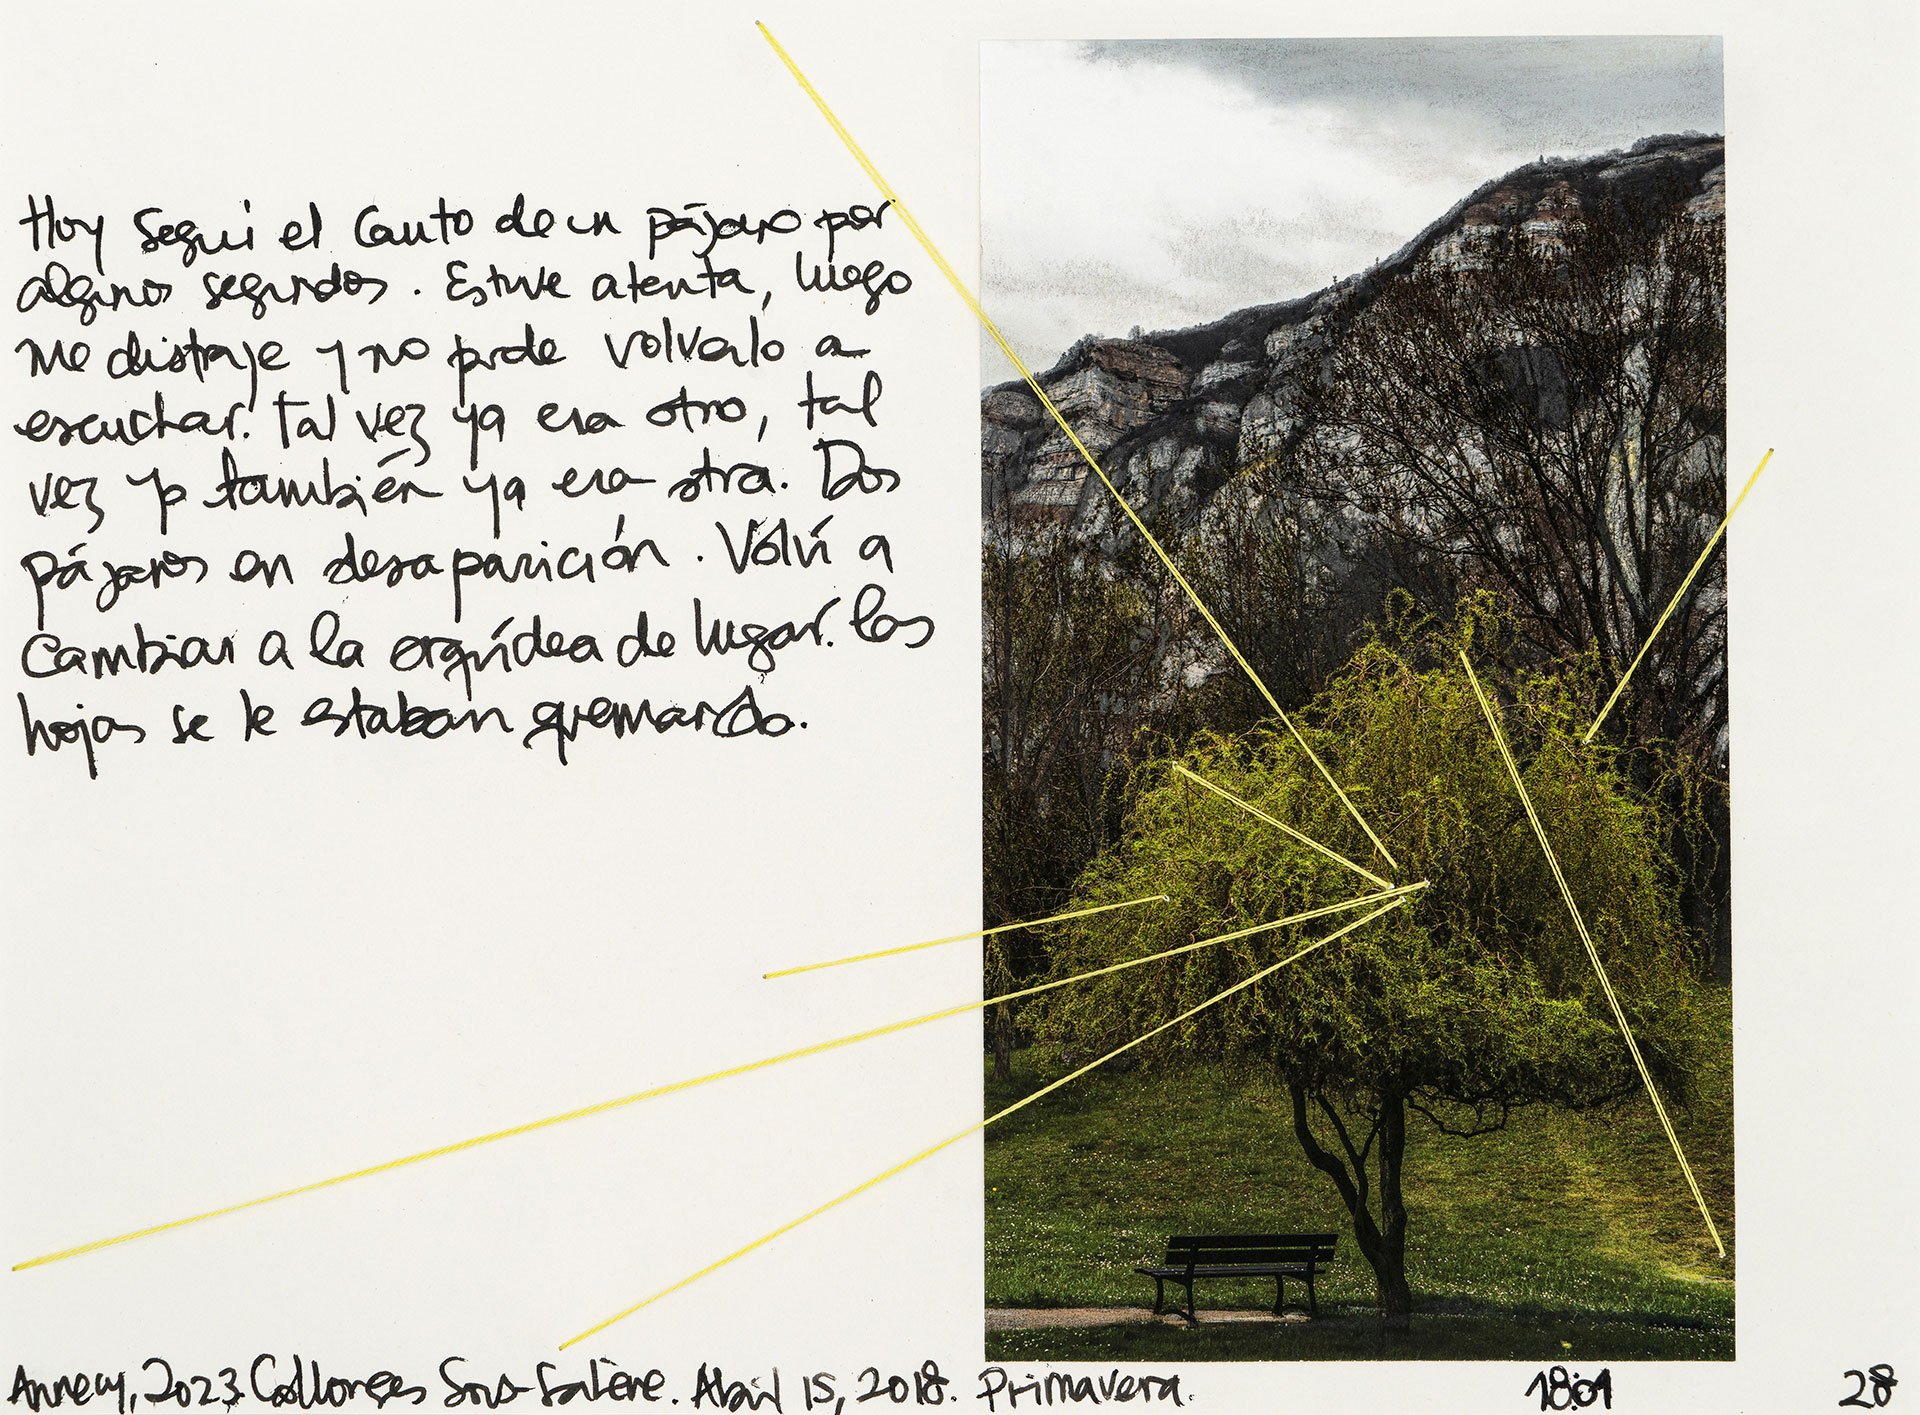 Hoy Seguí el Canto de un pájaro por
algunos segundos. Estuve atenta, luego
me distraje y no pude volverlo a
escuchar. Tal vez ya era otro, tal
vez yo también ya era otra. Dos
pájaros en desaparición. Volví a
Cambiar a la orquídea de lugar. las
hojas se le estaban quemando.
Annecy, 2023. Collonges Sous-Salève. Abril 15, 2018. Primavera. 18:01 28